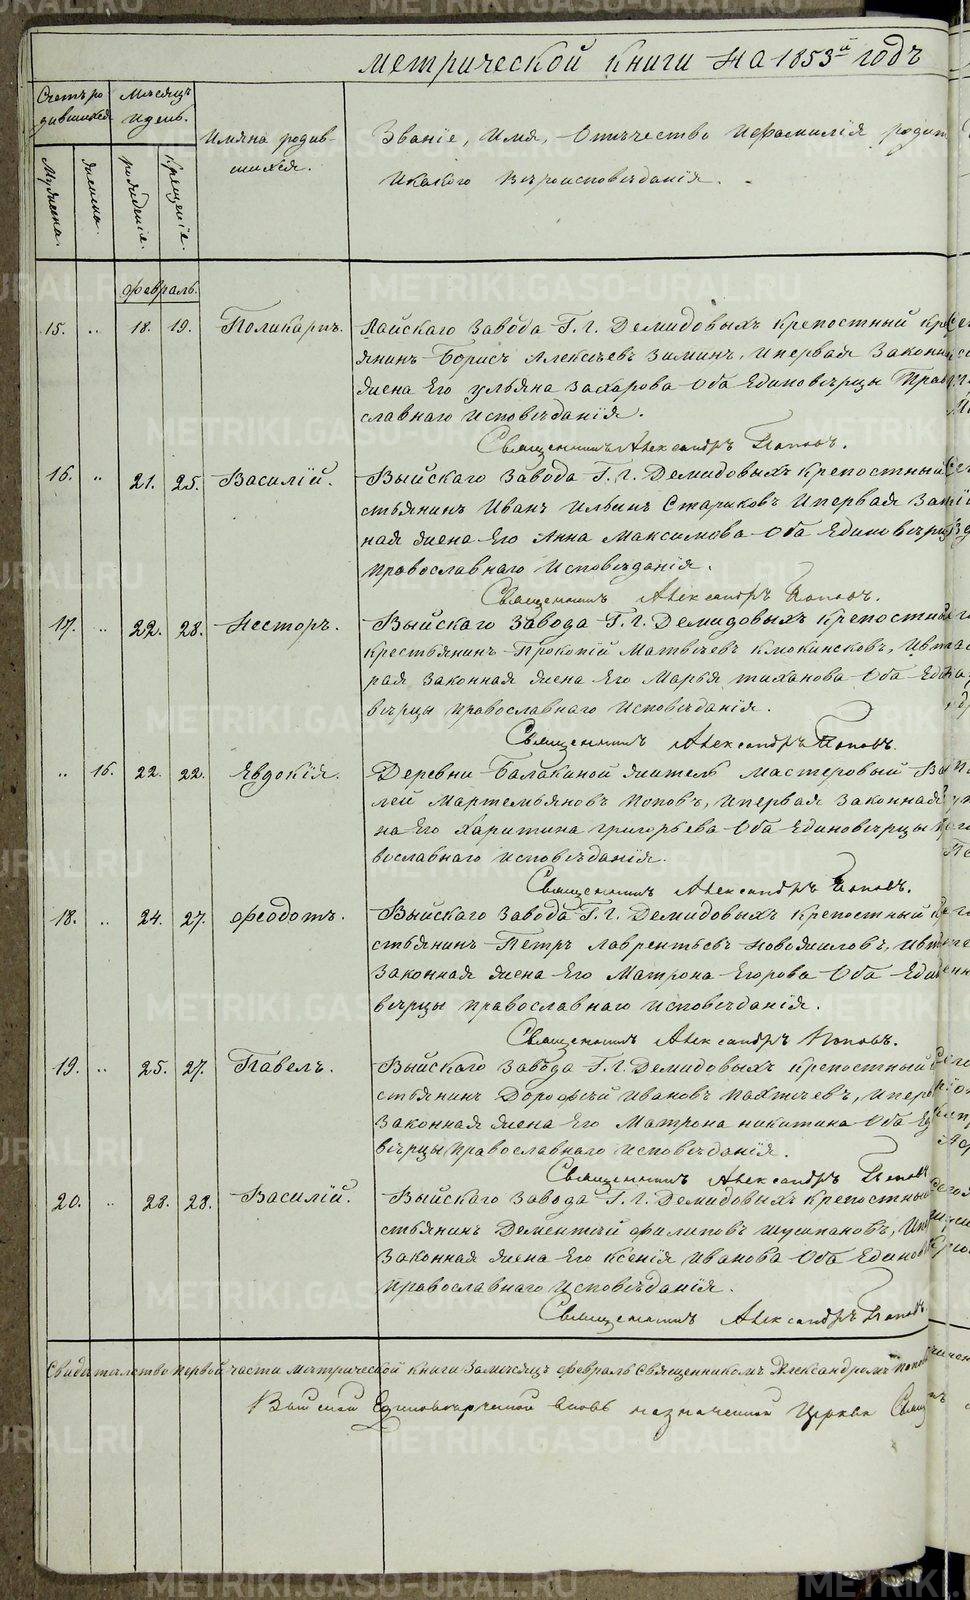 метрической книги на 1853й годъ
Счетъ ро
дившихся
Месяцъ
и день.
Имяна родив-
шихся.
Званіе, Имя, Отчество и фамилія родит
и какого вероисповеданія.
Мужеска.
женска.
рожденія.
крещенія.
Февраль.
15. " 18. 19. Поликарпъ. Лайскаго завода Г. г. Демидовыхъ крепостный кре
янинъ Борисъ Алексеевъ Зиминъ, и первая законн
жена Его Ульяна Захарова Оба Единоверцы Прав
славнаго исповеданія.
Священникъ Александръ Поповъ.
16. " 21. 25. Василій. Выйскаго завода Г. г. Демидовыхъ крепостный
стьянинъ Иванъ Ильинъ Стариковъ и первая Зак
ная жена Его Анна Максимова Оба Единоверц
Православнаго Исповеданія.
Священникъ Александръ Поповъ.
17. " 22. 28. Несторъ. Выйскаго завода Г. г. Демидовыхъ крепостны
крестьянинъ Прокопій Матвеевъ, и вт
рая законная жена Его Марья тиханова Оба Еди
верцы православнаго исповеданія.
Священникъ Александръ Поповъ.
" 16. 22. 22. Евдокія. Деревни Балакиной житель мастеровый Ва
лей Мартемьяновъ Поповъ, и первая законная
на Его Харитина григорьева Оба Единоверцы п
вославнаго исповеданія.
Священникъ Александръ Поповъ.
18. " 24. 27. Феодотъ. Выйскаго завода Г. г. Демидовыхъ крепостный к
стьянинъ Петръ Лаврентьевъ Новожиловъ, и вт
Законная жена Его Матрона Егорова Оба Еди
верцы православнаго исповеданія.
Священникъ Александръ Поповъ.
19. " 25. 27. Павелъ. Выйскаго завода Г. г. Демидовыхъ крепостный
стьянинъ Дорофей Ивановъ Пахтеевъ, и перв
Законная жена Его Матрона никитина Оба Ед
верцы Православнаго исповеданія.
Священникъ Александръ Поповъ
20. " 28. 28. Василій. Выйскаго завода Г. г. Демидовыхъ крепостный
стьянинъ Дементей филиповъ Шушпановъ, и п
Законная жена Его Ксенія Иванова Оба Единов
Православнаго исповеданія.
Священникъ Александръ Поповъ.
Свидетелство первой части метрической книги за месяцъ февраль Священникомъ Александромъ Попов
Выйской Единоверческой вновь назначенной Церкви Свящ
METRIKI.GASO-URAL.RU